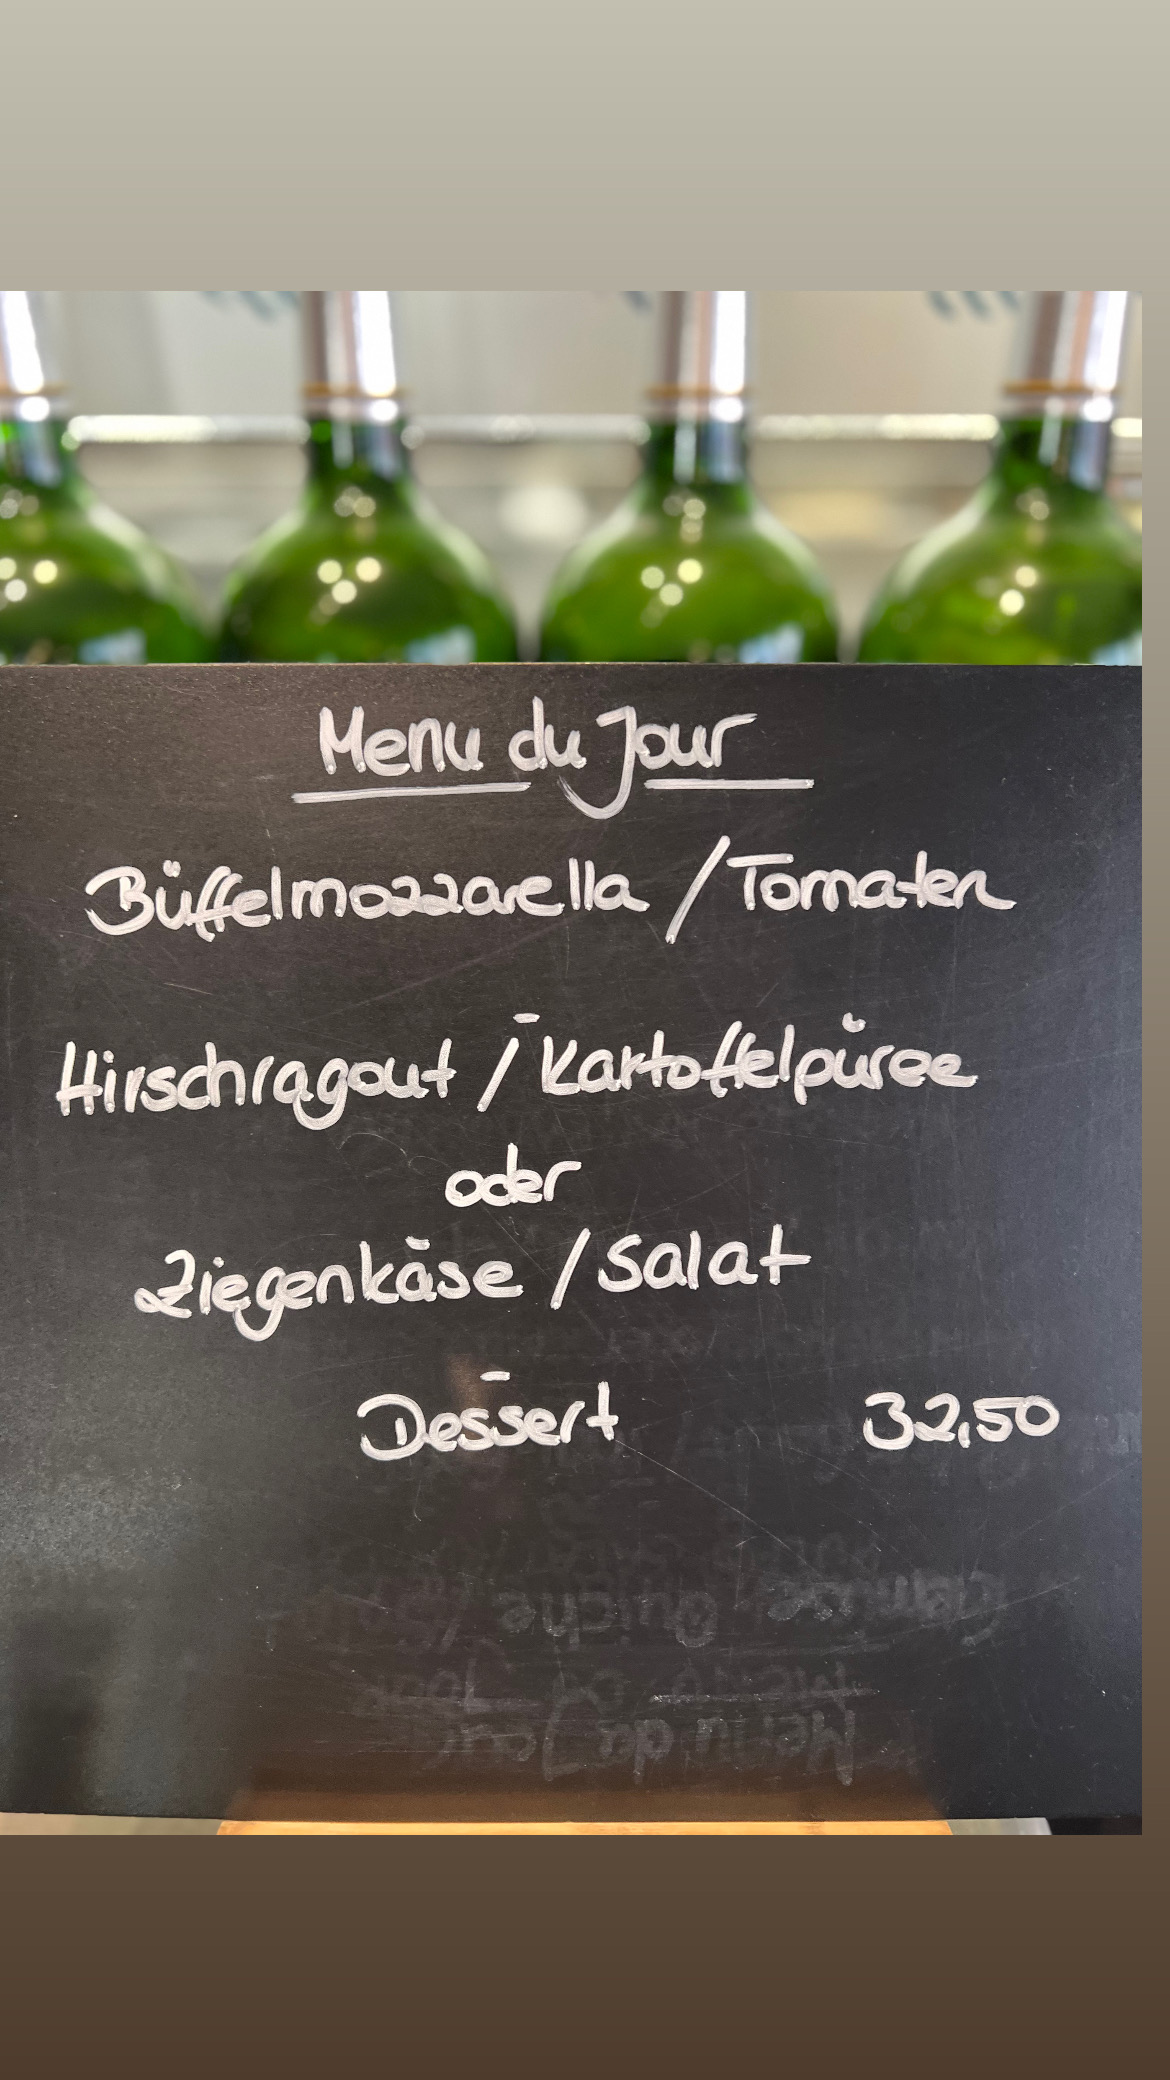 Menu du Jour
Büffelmozzarella / Tomaten
-
Hirschragout / Kartoffelpüree
oder
Ziegenkäse / Salat
-
Dessert 32,50